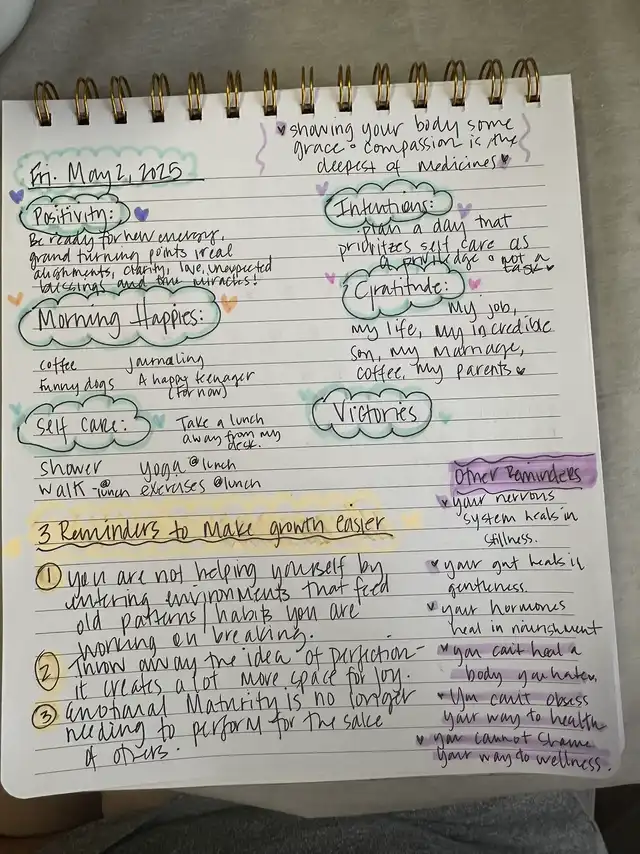 showing your body some
grace + compassion is the
deepest of medicines
Fri. May 2, 2025
Positivity:
Be ready for new energy,
grand turning points, real
alignments, clarity, love, unexpected
blessings and true miracles!
Intentions:
plan a day that
prioritizes self care as
a privledge + not a
task
Morning Happies:
coffee journaling
funny dogs A happy teenager
(for now)
Gratitude:
My job,
my life, my incredible
son, my marriage,
coffee, my parents
Self Care:
Take a lunch
away from my
desk.
shower yoga @lunch
walk @lunch exercises @lunch
Victories
3 Reminders to Make growth easier
1 you are not helping yourself by
entering environments that feed
old patterns/habits you are
working on breaking.
2 Throw away the idea of perfection-
it creates a lot more space for joy.
3 Emotional Maturity is no longer
needing to perform for the sake
of others.
Other Reminders
your nervous
system heals in
stillness.
your gut heals in
gentleness.
your hormones
heal in nourishment
you can't heal a
body you hate.
You can't obsess
your way to health
you cannot shame
your way to wellness.